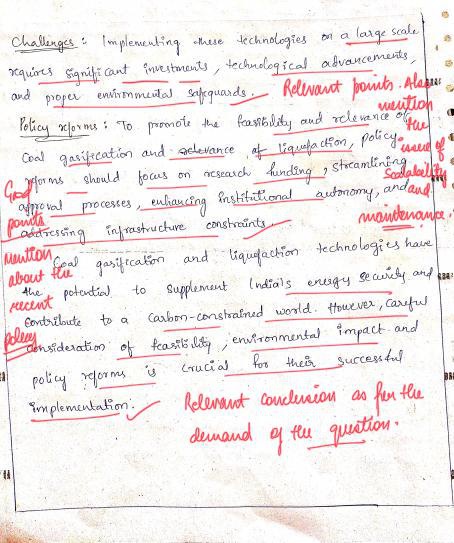 Challenges : Implementing these technologies on a large scale
requires significant investments, technological advancements,
and proper environmental safeguards.
Relevant points. Also
mention
the
issue of
Scalability
and
maintenance.
Policy reforms : To promote the feasibility and relevance of
Coal gasification and relevance of liquefaction, policy
reforms should focus on research funding, streamlining
approval processes, enhancing institutional autonomy, and
addressing infrastructure constraints.
Good
points
mention
about the
recent
policy
Coal gasification and liquefaction technologies have
the potential to supplement India's energy security and
contribute to a carbon-constrained world. However, careful
consideration of feasibility, environmental impact and
policy reforms is crucial for their successful
implementation.
Relevant conclusion as per the
demand of the question.